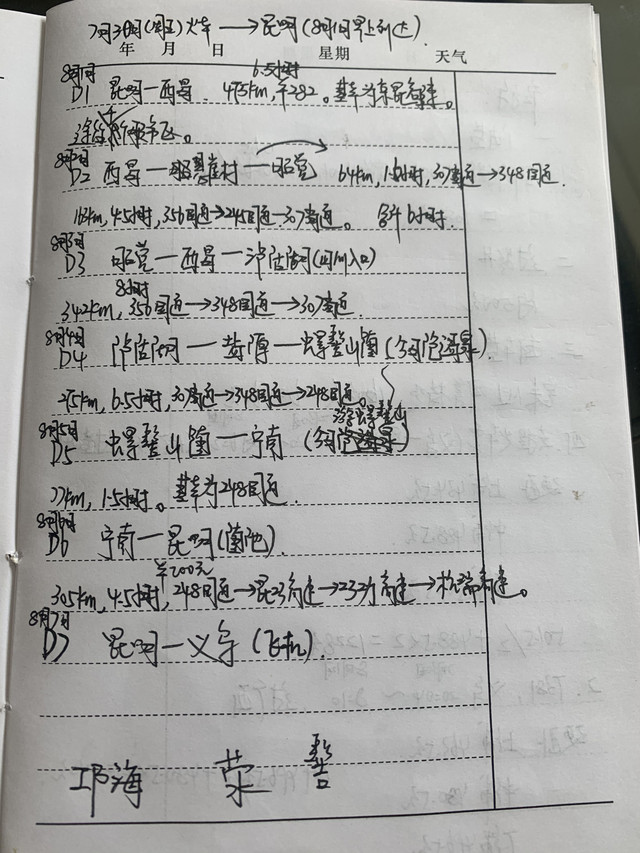 7月30日(周五)火车→昆明(8月1日早上到达).
年 月 日 星期 天气
8月1日 6.5小时
D1 昆明—西昌. 475km, 羊282。基本为京昆高速。
8月2日
D2 西昌—昭觉 悬崖村—昭觉 64km, 1.5小时, 307省道→348国道.
163km, 4.5小时, 356国道→245国道→307省道。合计6小时.
8月3日
D3 昭觉—西昌—泸沽湖(四川入口)
8小时
342km, 356国道→348国道→307省道
8月4日
D4 泸沽湖—盐源—螺髻山镇
275km, 6.5小时, 307省道→348国道→248国道。
游玩螺髻山
8月5日
D5 螺髻山镇—宁南
77km, 1.5小时。基本为248国道.
8月6日
D6 宁南—昆明(滇池).
羊200元
305km, 4.5小时, 248国道→昆巧高速→高速→杭瑞高速。
8月7日
D7 昆明—义乌(飞机).
髻
邛海 荥